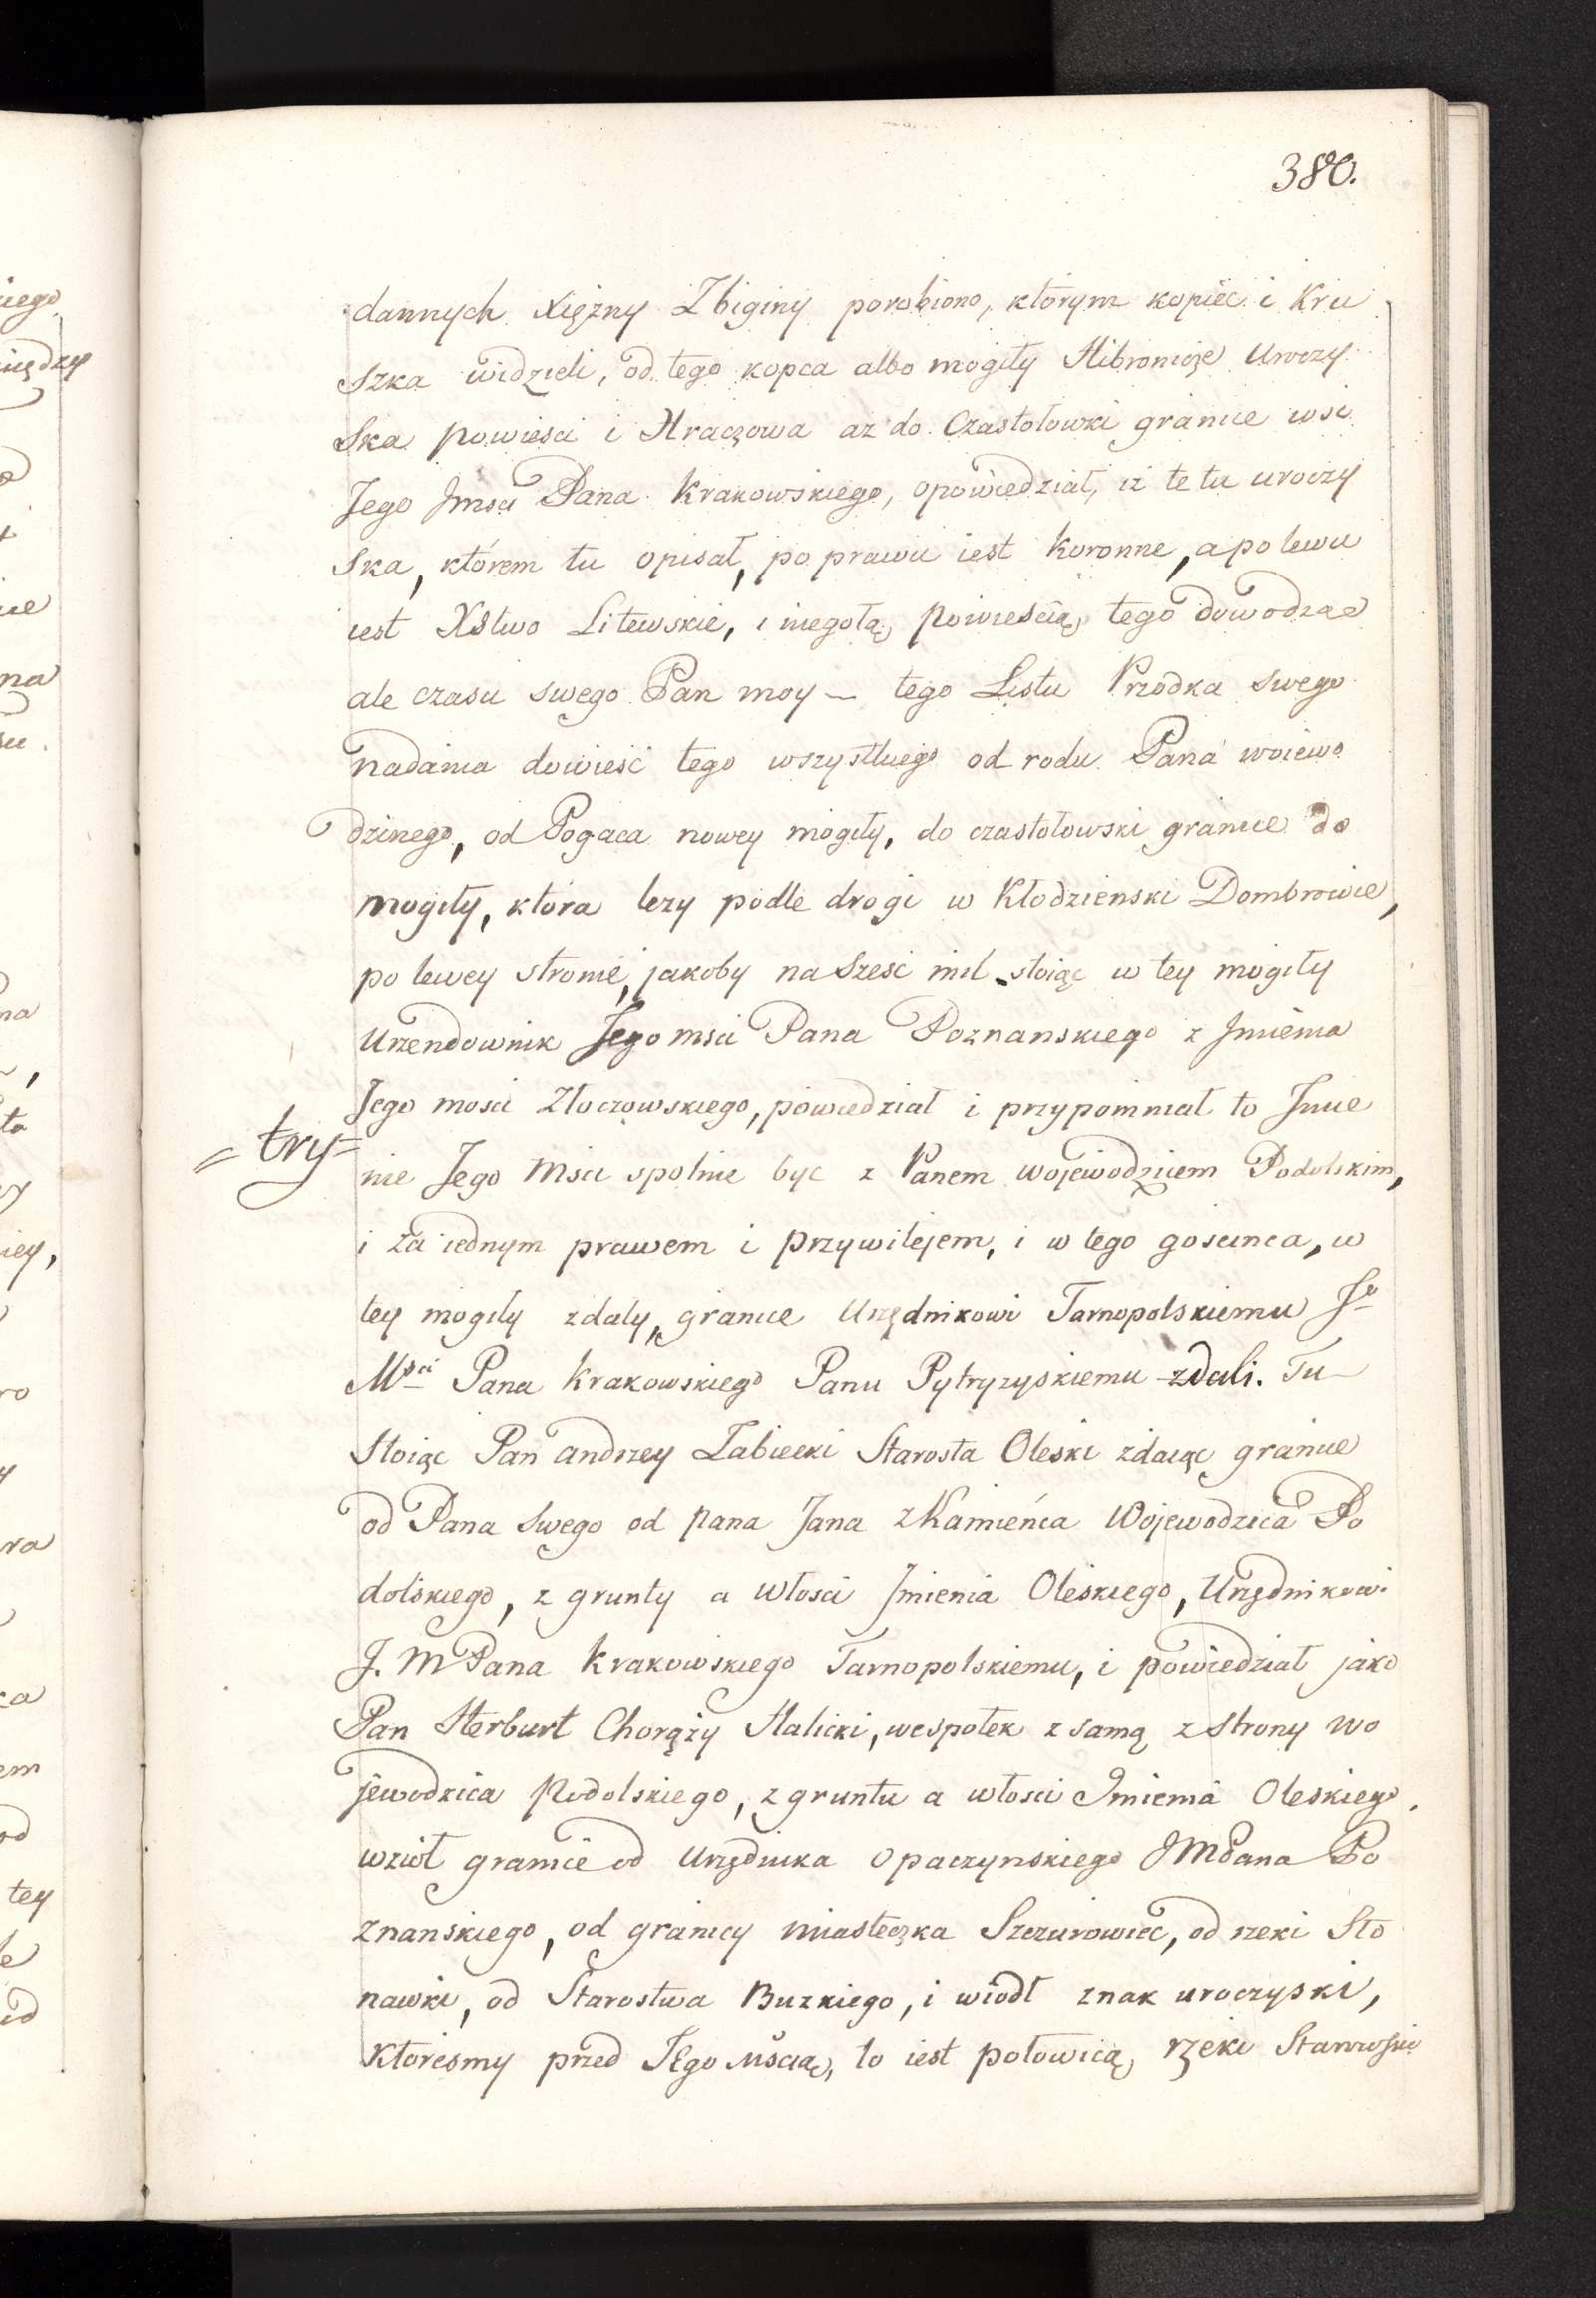 380.
dannych Xiężny Zbiginy porobiono, ktorym kopiec i Kru
szka widzieli, od tego kopca albo mogiły Hibronicze Uroczy
ska powieści i Hraczowa aż do Czastołowki granice wsi
Jego Jmsci Pana Krakowskiego, opowiedział, iż te tu uroczy
ska, którem tu opisał, po prawu iest Koronne, a po lewu
iest Xstwo Litewskie, i niegołą powieścią tego dowodzae
ale czasu swego Pan moy – tego Listu Przodka swego
nadania dowieść tego wszystkiego od rodu Pana woiewo
dzinego, od Pogaca nowey mogiły, do czastołowski granice do
mogiły, która lezy podle drogi w Kłodzienski Dombrowie,
po lewey stronie, jakoby na sześć mil stoiąc w tey mogiły
Urzendownik Jego msci Pana Poznanskiego z Jmienia
Jego mosci Złoczowskiego, powiedział i przypomniał to Jmie
=try=
nie Jego Msci spolnie byc z Panem wojewodzicem Podolskim,
i za iednym prawem i przywilejem, i w tego goscinca, w
tey mogiły zdały, granice Urzędnikowi Tarnopolskiemu Jo
Msci Pana Krakowskiego Panu Pytryzyskiemu zdali. Tu
Stoiąc Pan andrzey Łabiecki Starosta Oleski zdaiąc granice
od Pana swego od pana Jana z Kamieńca Wojewodzica Po
dolskiego, z grunty a włości Jmienia Oleskiego, Urzędnikowi
J. M Pana Krakowskiego Tarnopolskiemu, i powiedział jako
Pan Herburt Chorąży Halicki, wespołek z samą z strony Wo
jewodzica Podolskiego, z gruntu a włości Jmienia Oleskiego,
wziół granice od Urzędnika Opaczynskiego JMPana Po
znanskiego, od granicy miasteczka Szczurowiec, od rzeki Sło
nawki, od Starostwa Buzkiego, i wiódł znak uroczyski,
Ktoresmy przed JEgo Mścią, to iest połowicą rzeki